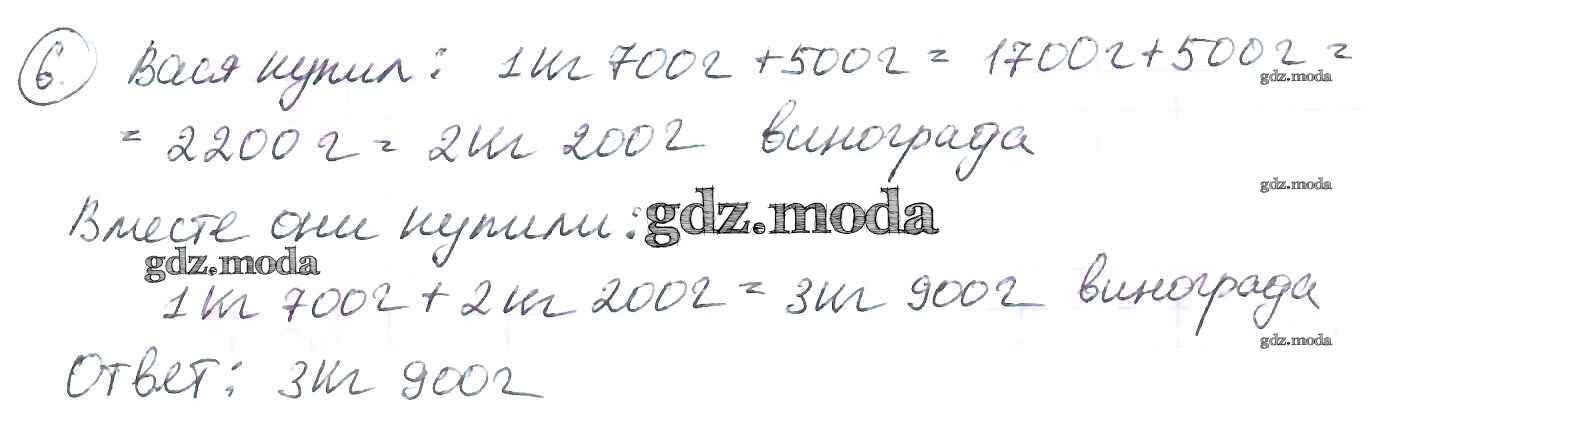 6. Вася купил: 1кг 700г + 500г = 1700г + 500г =
gdz.moda
= 2200 г = 2кг 200г винограда
gdz.moda
Вместе они купили: gdz.moda
gdz.moda
1кг 700г + 2кг 200г = 3кг 900г винограда
gdz.moda
Ответ: 3кг 900г